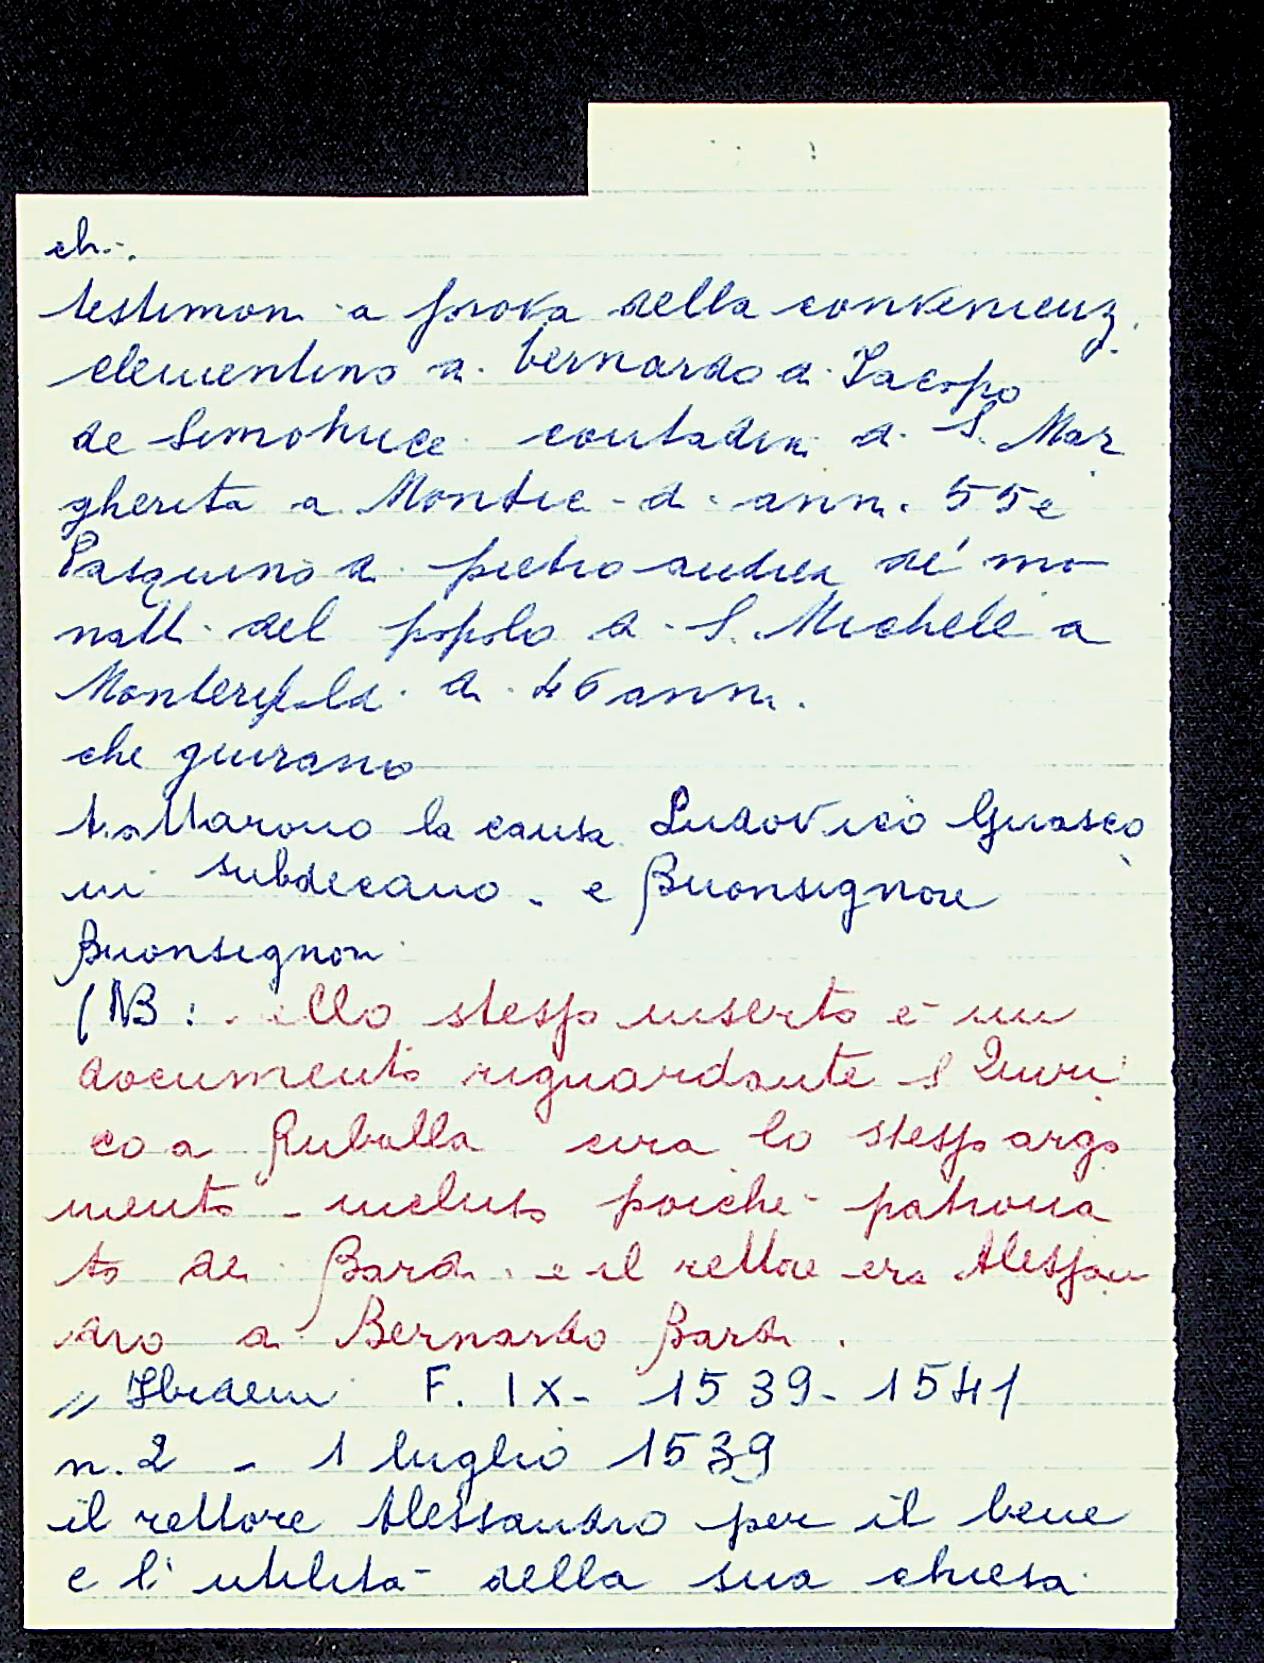 ch..
testimoni a prova della convenienz.
clementino di bernardo di Iacopo
de contadini di S. Mar
gherita a Montici di anni 55 e
Pasquino di pietro andrea de' mo
natti del popolo di S. Michele a
Monteripaldi di 46 anni.
che giurano
trattarono la causa Ludovico Guasco
ni subdecano e Buonsignore
Buonsignori
(NB: nello stesso inserto e un
documento riguardante S Quiri
co a Ruballa circa lo stesso argo
mento - incluso poiche patrona
to dei Bardi. e il rettore era Alessan
dro di Bernardo Bardi.
" Ibidem F. IX- 1539-1541
n. 2 - 1 luglio 1539
il rettore Alessandro per il bene
e l'utilita della sua chiesa